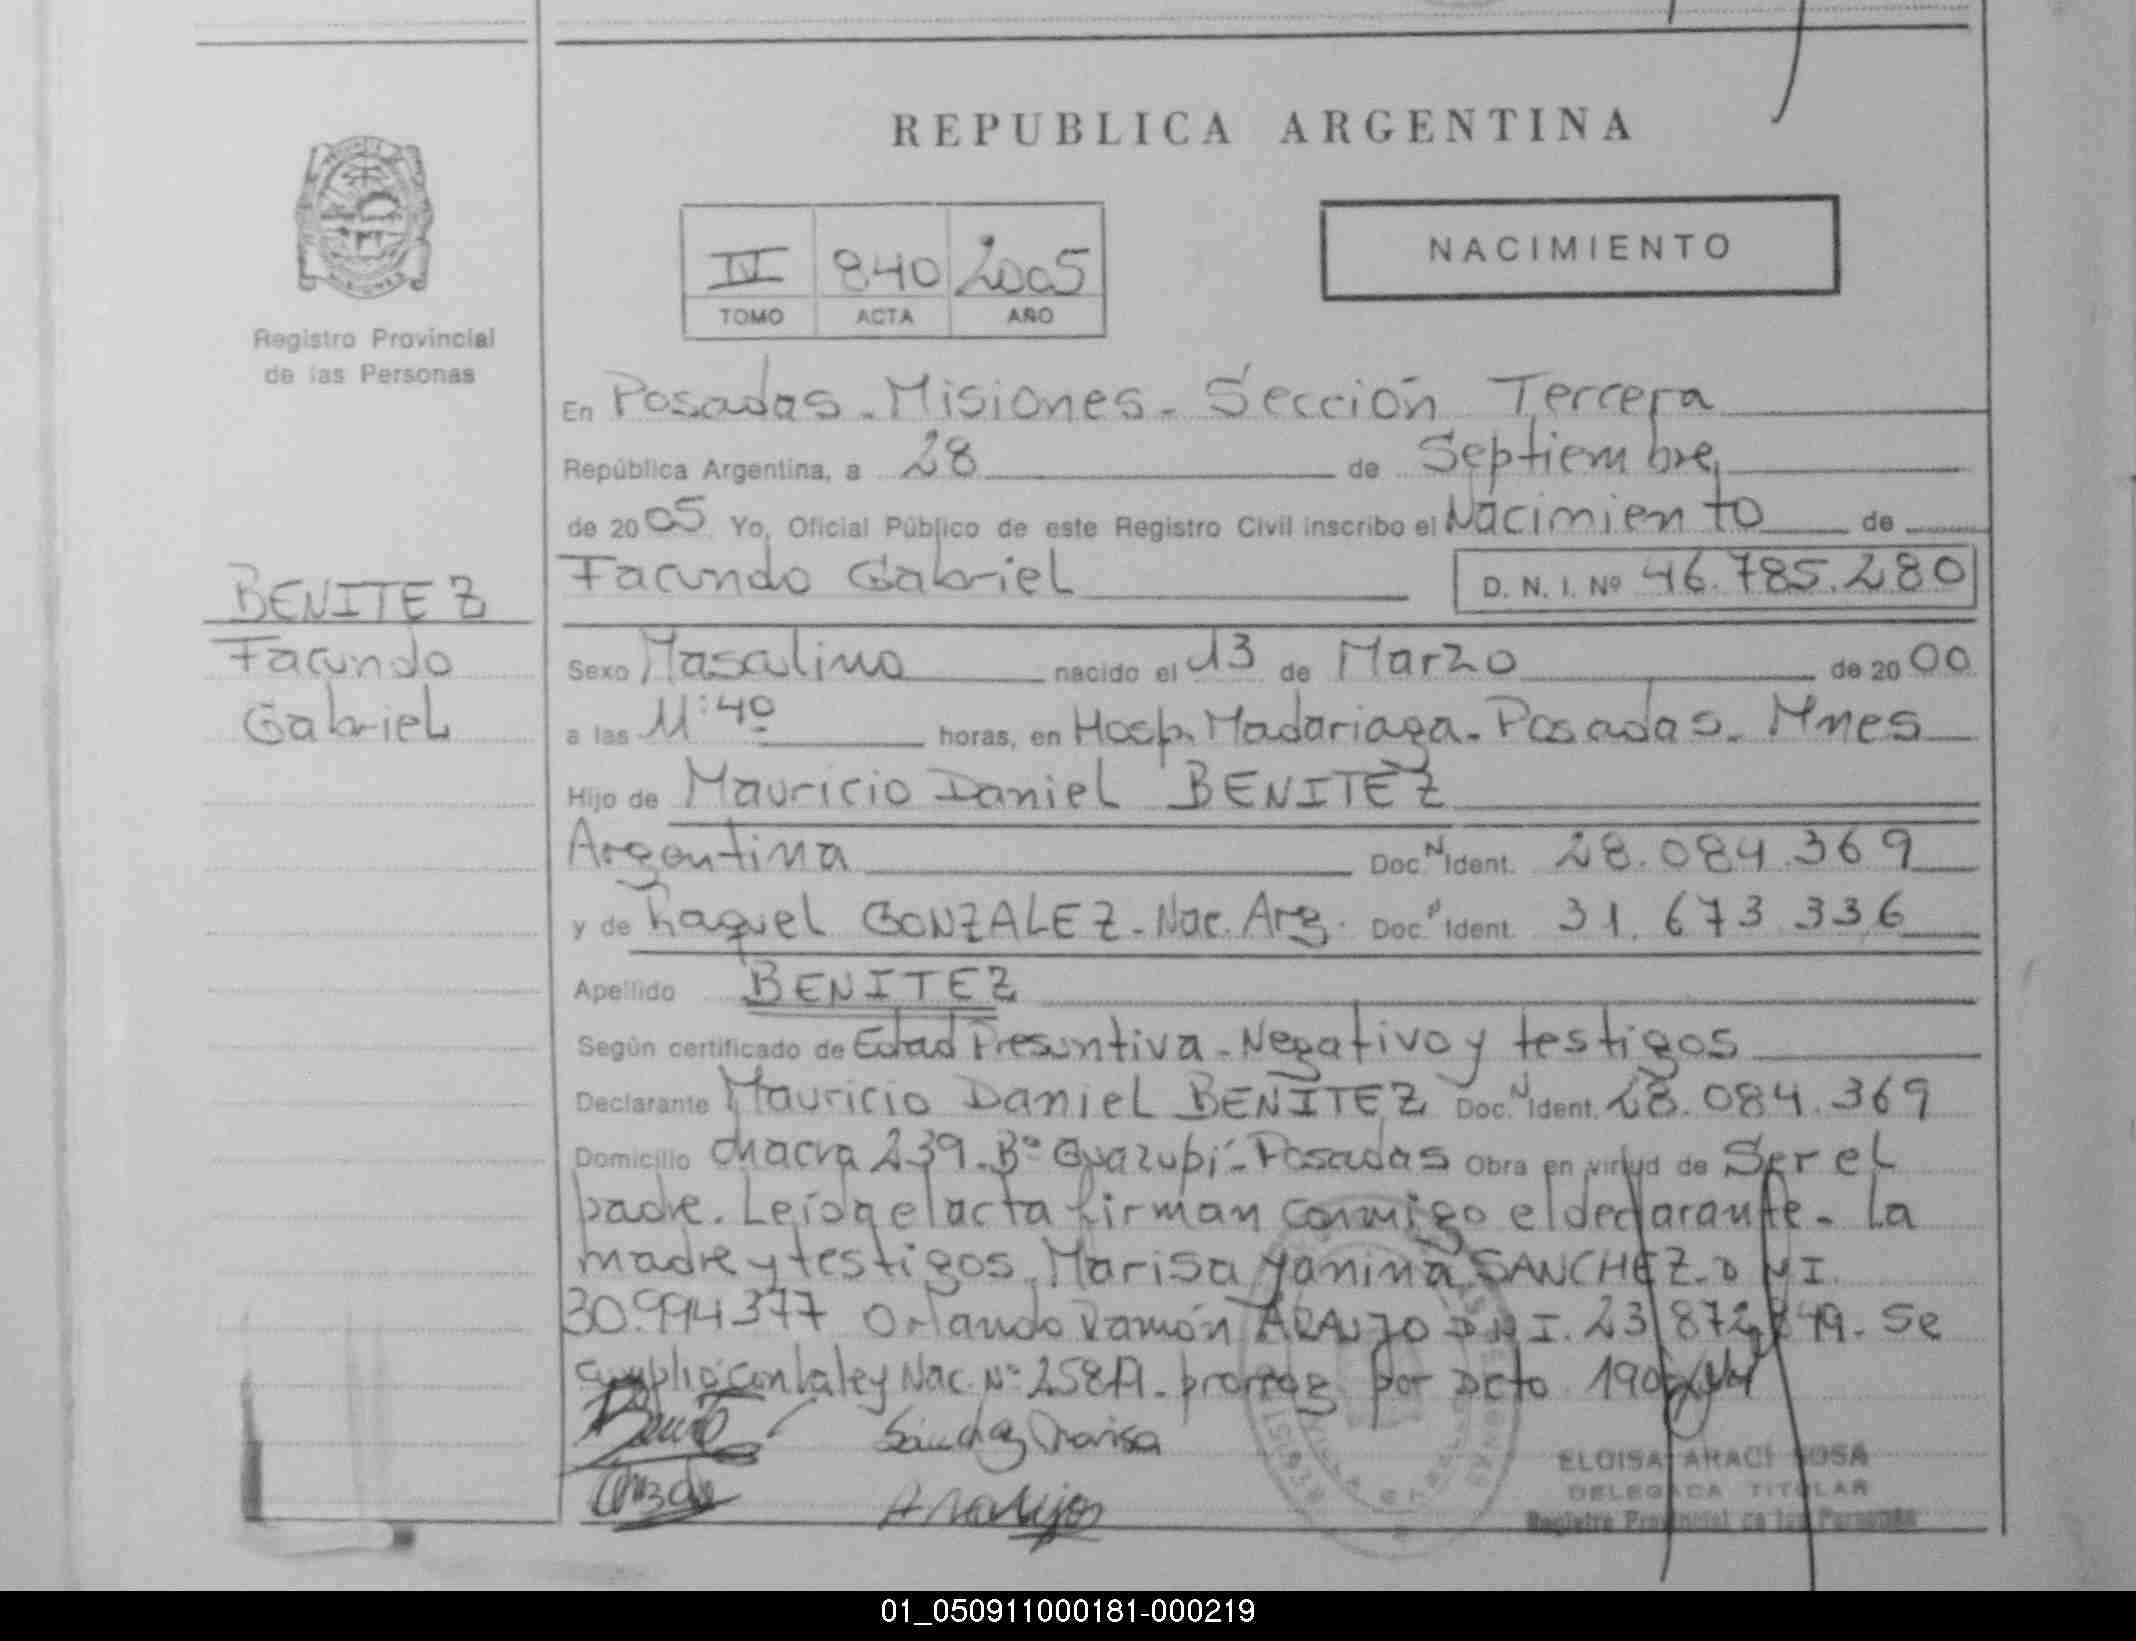 REPUBLICA ARGENTINA
NACIMIENTO
IV 840 2005
TOMO ACTA AÑO
Registro Provincial
de las Personas
En Posadas - Misiones - Sección Tercera
República Argentina, a 28 de Septiembre
de 2005 Yo, Oficial Público de este Registro Civil inscribo el Nacimiento de
Facundo Gabriel D. N. I. Nº 46.785.280
BENITEZ
Facundo
Gabriel
Sexo Masculino nacido el 13 de Marzo de 2000
a las 11:40 horas, en Hosp. Madariaga - Posadas - Mnes
Hijo de Mauricio Daniel BENITEZ
Argentina Doc. N Ident. 28.084.369
y de Raquel GONZALEZ - Nac. Arg. Doc. Ident. 31.673.336
Apellido BENITEZ
Según certificado de Edad Presuntiva - Negativo y testigos
Declarante Mauricio Daniel BENITEZ Doc. N Ident. 28.084.369
Domicilio chacra 239 - Bº Guazupi - Posadas Obra en virtud de Ser el
padre. Leída el acta firman conmigo el declarante - la
madre y testigos, Marisa Yanina SANCHEZ - D N I.
30.994377 Orlando Ramón ARAUJO D N I. 23 872 849 - Se
cumplió con la ley Nac. Nº por Dcto
Sanchez Marisa
ELOISA ARACI SOSA
DELEGADA TITULAR
Registro Provincial de las Personas
01_050911000181-000219